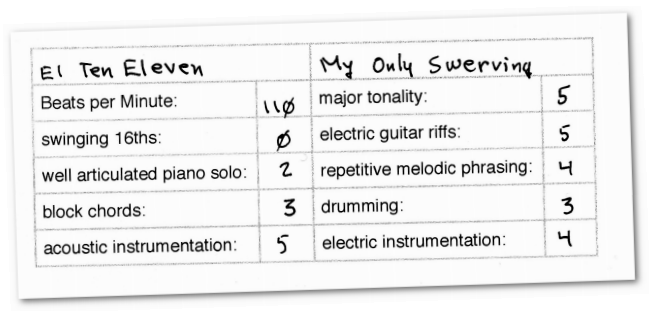 El Ten Eleven My Only Swerving
Beats per Minute: 110 major tonality: 5
swinging 16ths: 0 electric guitar riffs: 5
well articulated piano solo: 2 repetitive melodic phrasing: 4
block chords: 3 drumming: 3
acoustic instrumentation: 5 electric instrumentation: 4